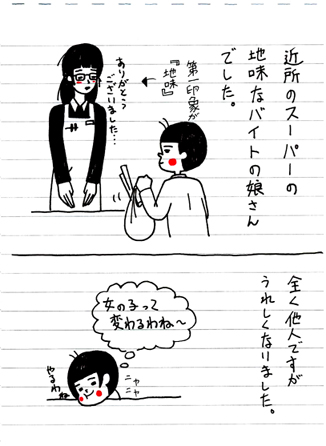 近所のスーパーの
地味なバイトの娘さん
でした。
第一印象が
『地味』
ありがとう
ございました…
全く他人ですが
うれしくなりました。
女の子って
変わるわね〜
ニヤニヤ
やるわね